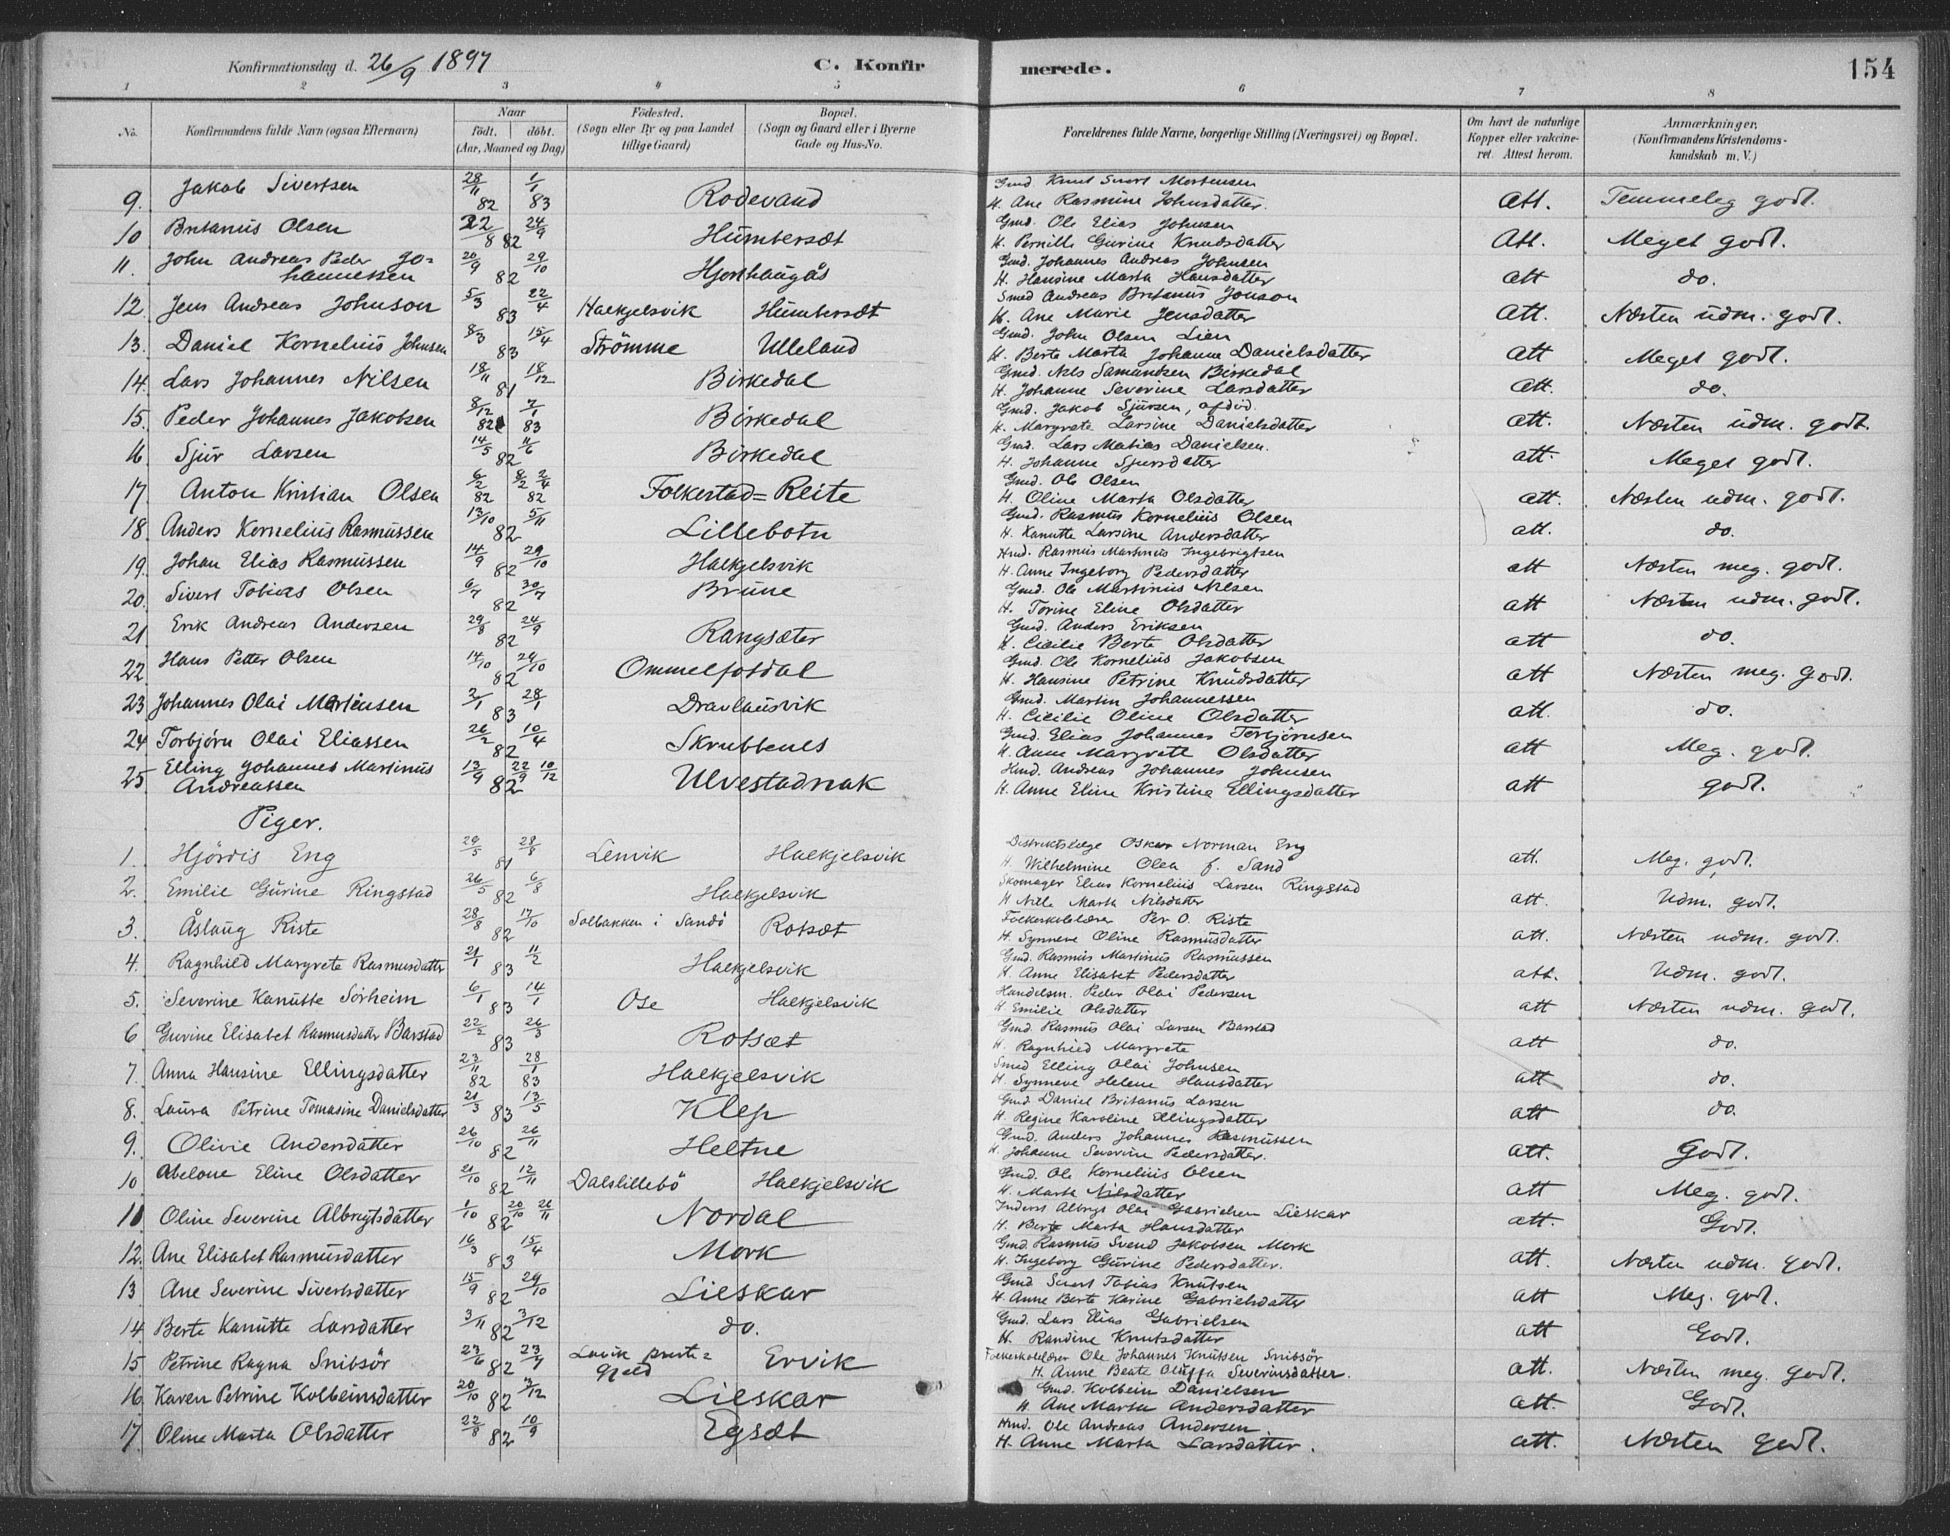 Konfirmationsdag d. 26/9 1897 C. Konfirmerede. 154
1 2 3 4 5 6 7 8
No. Konfirmandens fulde Navn (ogsaa Efternavn) Naar födt. döbt. (Aar, Maaned og Dag) Födested. (Sogn eller By og paa Landet tillige Gaard) Bopæl. (Sogn og Gaard eller i Byerne Gade og Hus-No. Forældrenes fulde Navne, borgerlige Stilling (Næringsvei) og Bopæl. Om havt de naturlige Kopper eller vakcineret. Attest herom. Anmærkninger, (Konfirmandens Kristendomskundskab m. V.)
9. Jakob Sivertsen 28/11 82 1/1 83 Rodevand Gmd Knut Sivert Mortensen H. Ane Rasmine Johnsdatter. Att. Temmeleg godt.
10 Britanus Olsen 22/8 82 24/9 Humbersæt Gmd. Ole Elias Johnsen H. Pernille Gurine Knudsdatter Att. Meget godt.
11. John Andreas Peder Johannessen 20/9 82 29/10 Hjorthaugås Gmd. Johannes Andreas Johnsen H. Hansine Marta Hansdatter att do.
12. Jens Andreas Johnson 5/3 83 22/4 Halkjelsvik Humbersæt Smed Andreas Britanus Jonson H. Ane Marie Jensdatter Att. Næsten udm. godt.
13. Daniel Kornelius Johnsen 8/3 83 15/4 Strömme Ulleland Gmd. John Olsen Lien H. Berte Marta Johanne Danielsdatter Att Meget godt.
14. Lars Johannes Nilsen 18/11 81 18/12 Birkedal Gmd. Nils Samundsen Birkedal H. Johanne Severine Larsdatter att. do.
15. Peder Johannes Jakobsen 8/12 82 7/1 83 Birkedal Gmd. Jakob Sjursen, afdöd. H. Margrete Larsine Danielsdatter att. Næsten udm. godt.
16 Sjur Larsen 14/5 82 11/6 Birkedal Gmd. Lars Matias Danielsen. H. Johanne Sjursdatter att. Meget godt.
17 Anton Kristian Olsen 6/2 82 8/2 2/4 82 Folkestad=Reite Gmd. Ole Olsen H. Oline Marta Olsdatter att. Næsten udm. godt.
18 Anders Kornelius Rasmussen 13/10 82 5/11 Lillebotn Gmd. Rasmus Kornelius Olsen H. Kanutte Larsine Andersdatter att. do.
19. Johan Elias Rasmussen 14/9 82 29/10 Halkjelsvik Hmd. Rasmus Martinus Ingebrigtsen H. Anne Ingeborg Pedersdatter att Næsten meg. godt.
20. Sivert Tobias Olsen 6/7 82 30/7 Brune Gmd. Ole Martinius Nilsen H. Torine Eline Olsdatter att Næsten udm. godt.
21 Erik Andreas Andersen 29/8 82 24/9 Rangsæter Gmd. Anders Eriksen H. Cicilie Berte Olsdatter att do.
22. Hans Petter Olsen 14/10 82 29/10 Ommelfotdal Gmd. Ole Kornelius Jakobsen H. Hansine Petrine Knudsdatter att Næsten meg. godt.
23 Johannes Olai Martinsen 2/1 83 28/1 Dravlausvik Gmd. Martin Johannessen H. Cicilie Oline Olsdatter att. do.
24 Torbjörn Olai Eliassen 26/2 82 10/4 Skrubbenes Gmd. Elias Johannes Torbjörnsen H. Anne Margrete Olsdatter att Meg. godt.
25 Elling Johannes Martinus Andreassen 13/9 82 22/9 10/12 Ulvestadnak Hmd. Andreas Johannes Johnsen H. Anne Eline Kristine Ellingsdatter att godt.
Piger.
1. Hjördis Eng 29/5 81 28/8 Lenvik Halkjelsvik Distriktslæge Oskar Norman Eng H. Wilhelmine Olea f. Sand att. Meg. godt.
2. Emilie Gurine Ringstad 26/5 82 6/8 Halkjelsvik Skomager Elias Kornelius Larsen Ringstad H Nille Marta Nilsdatter att. Udm. godt.
3. Åslaug Riste 28/8 82 17/10 Solbakken i Sandö Rotsæt Folkeskolelærer Per O. Riste H. Synneve Oline Rasmusdatter att. Næsten udm. godt.
4. Ragnhild Margrete Rasmusdatter 21/1 83 11/2 Halkjelsvik Gmd. Rasmus Martinus Rasmussen H. Anne Elisabet Pedersdatter att. Udm. godt.
5. Severine Kanutte Sörheim 6/1 83 14/1 Ose Halkjelsvik Handelsm. Peder Olai Pedersen H Emilie Olsdatter att Næsten udm. godt.
6 Gurine Elisabet Rasmusdatter Barstad 22/2 83 26/3 Rotsæt Gmd. Rasmus Olai Larsen Barstad H. Ragnhild Margrete att do.
7. Anna Hansine Ellingsdatter 23/11 82 28/1 83 Halkjelsvik Smed Elling Olai Johnsen H. Synneve Helene Hansdatter att do.
8. Laura Petrine Tomasine Danielsdatter 21/3 83 13/5 Klep Gmd. Daniel Britanus Larsen H. Regine Karoline Ellingsdatter att do.
9. Olivie Andersdatter 26/10 82 26/11 Heltne Gmd. Anders Johannes Rasmussen H. Johanne Severine Pedersdatter. att. Godt.
10 Abelone Eline Olsdatter 21/10 82 12/11 Dalslillebö Halkjelsvik Gmd. Ole Kornelius Olsen H. Marta Nilsdatter att Meg. godt.
11 Oline Severine Albrigtsdatter 1/10 82 20/10 26/11 Nordal Inderst Albrigt Olai Gabrielsen Lieskar H. Berte Marta Hansdatter att. Godt.
12. Ane Elisabet Rasmusdatter 16/3 83 15/4 Mork Gmd Rasmus Svend Jakobsen Mork H. Ingeborg Gurine Pedersdatter. att. Næsten udm. godt.
13 Ane Severine Sivertsdatter 15/9 82 29/10 Lieskar Gmd Sivert Tobias Knutsen H. Anne Berte Karine Gabrielsdatter att Meg. godt.
14 Berte Kanutte Larsdatter 3/11 82 3/12 do. Gmd. Lars Elias Gabrielsen H. Randine Knutsdatter att Godt.
15 Petrine Ragna Snibsör 23/6 82 23/7 Lavik præstegjeld Ervik Folkeskolelærer Ole Johannes Knutsen Snibsör H. Anne Beate Oluffa Severinsdatter. att. Næsten meg. godt.
16 Karen Petrine Kolbeinsdatter 20/10 82 3/12 Lieskar Gmd. Kolbein Danielsen H Ane Marta Andersdatter att. Godt.
17 Oline Marta Olsdatter 22/8 82 10/9 Egsæt Hmd. Ole Andreas Andersen H. Anne Marta Larsdatter. att. Næsten godt.